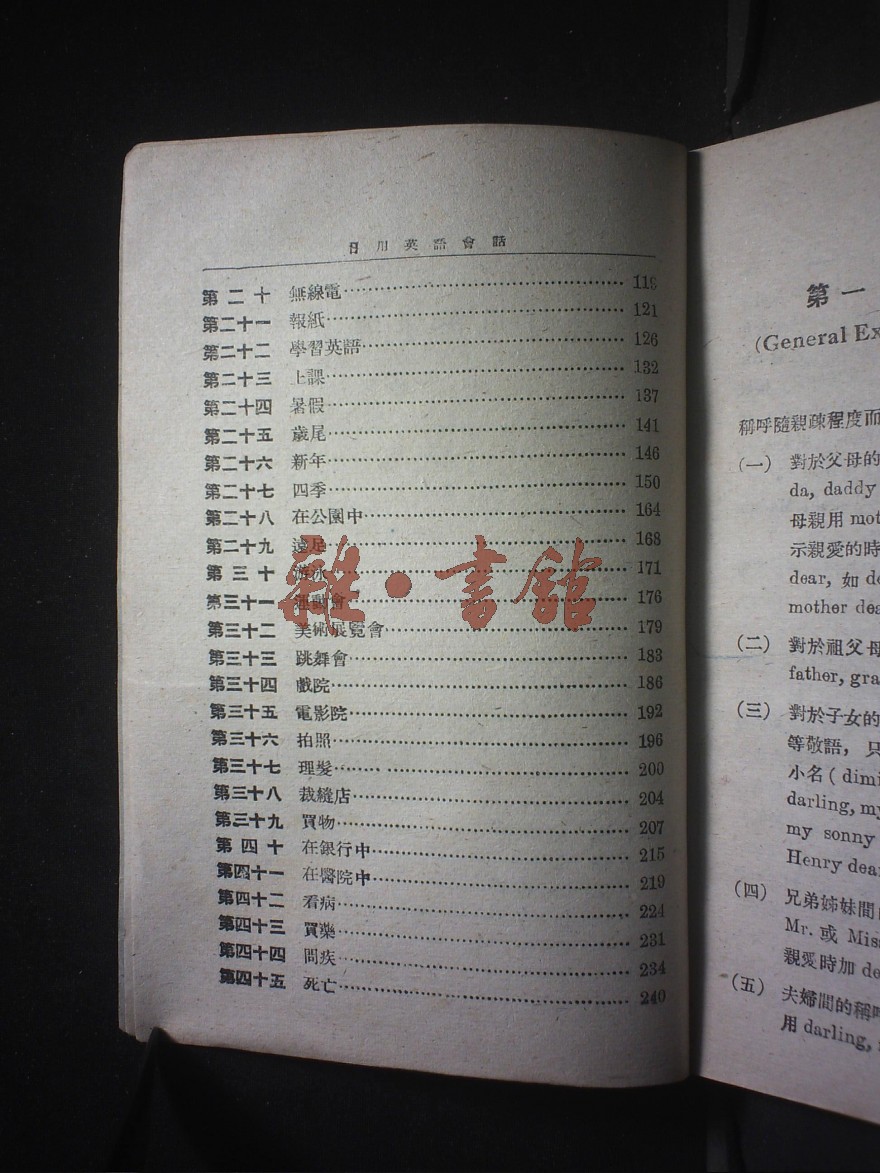 日用英語會話
第二十 無線電 116
第二十一 報紙 121
第二十二 學習英語 126
第二十三 上課 132
第二十四 暑假 137
第二十五 歲尾 141
第二十六 新年 146
第二十七 四季 150
第二十八 在公園中 164
第二十九 遠足 168
第三十 游泳 171
第三十一 運動會 176
第三十二 美術展覽會 179
第三十三 跳舞會 183
第三十四 戲院 186
第三十五 電影院 192
第三十六 拍照 196
第三十七 理髮 200
第三十八 裁縫店 204
第三十九 買物 207
第四十 在銀行中 215
第四十一 在醫院中 219
第四十二 看病 224
第四十三 買藥 231
第四十四 問疾 234
第四十五 死亡 240
雜·書館
第一
(General Ex
稱呼隨親疎程度而
(一) 對於父母的
da, daddy
母親用 mot
示親愛的時
dear, 如 de
mother dea
(二) 對於祖父母
father, gra
(三) 對於子女的
等敬語, 只
小名 (dimi
darling, my
my sonny
Henry dear
(四) 兄弟姊妹間
Mr. 或 Miss
親愛時加 de
(五) 夫婦間的稱呼
用 darling,